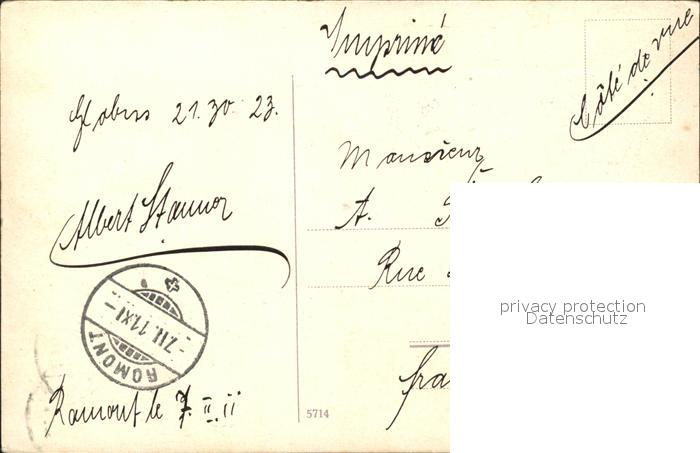 Imprimé
Côté de vue
Globus 21. 30. 23.
Monsieur
Albert
A.
Rue
privacy protection
Datenschutz
ROMONT
-7.II.11.XI-
Romont le 7. II. 11
5714